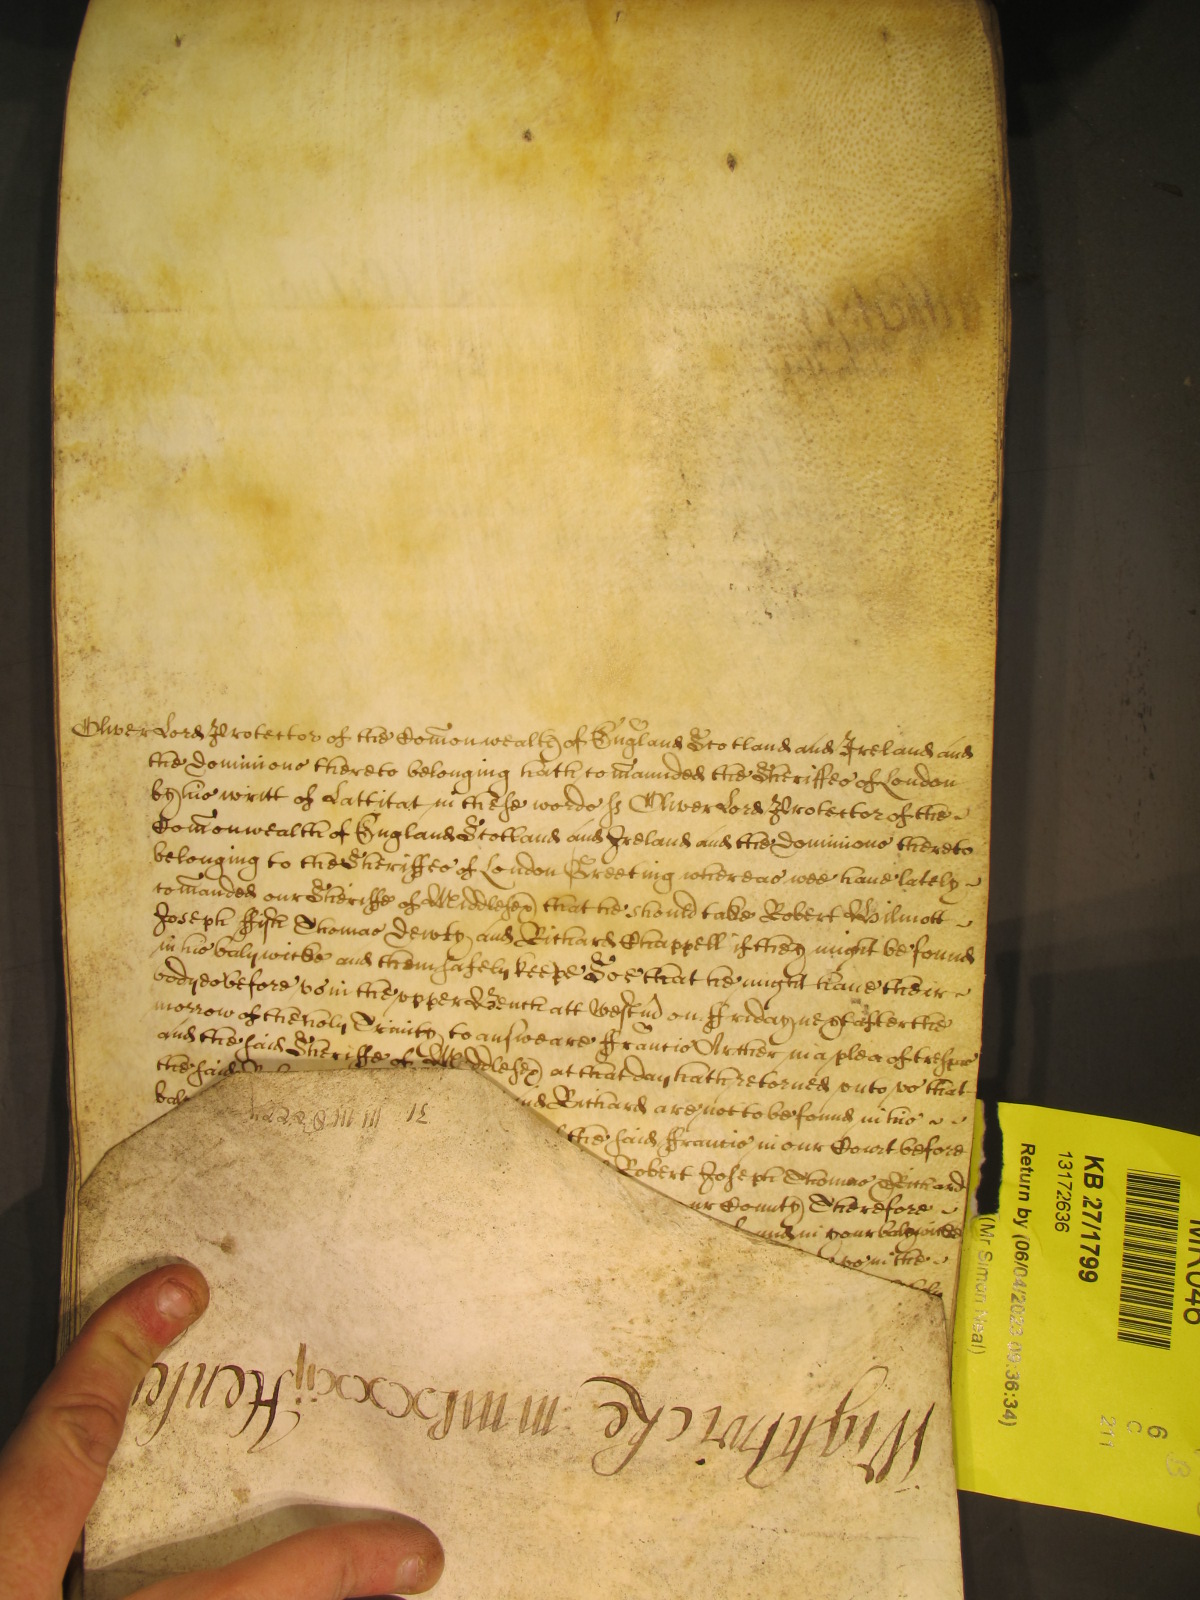 Oliver Lord Protector of the Com̄onwealth of England Scotland and Ireland and
the Dominions thereto belonging hath com̄aunded the Sheriffes of London
by his writt of Lattitat in these words ss Oliver Lord Protector of the
Com̄onwealth of England Scotland and Ireland and the Dominions thereto
belonging to the Sheriffes of London Greeting whereas wee have lately
com̄anded our Sheriffe of Middlesex that he should take Robert Wilmott
Joseph ffish Thomas Dewty and Richard Chappell if they might be found
in his balywicke and them safely keepe Soe that he might have their
bodyes before us in the upper Bench att Westm̄ on ffriday next after the
morrow of the holy Trinity to answeare ffrancis Arther in a plea of trespas
and the said Sheriffe of Middlesex at that day hath retorned unto us that
the said
nd Richard are not to be found in his
the said ffrancis in our Court before
Robert Joseph Thomas Richard
ur County Therefore
in your balywicke
us in the
Wightwicke mmlxxxij Henley
KB 27/1799
13172636
Return by (06/04/2023 09:36:34)
(Mr Simon Neal)
6
C
211